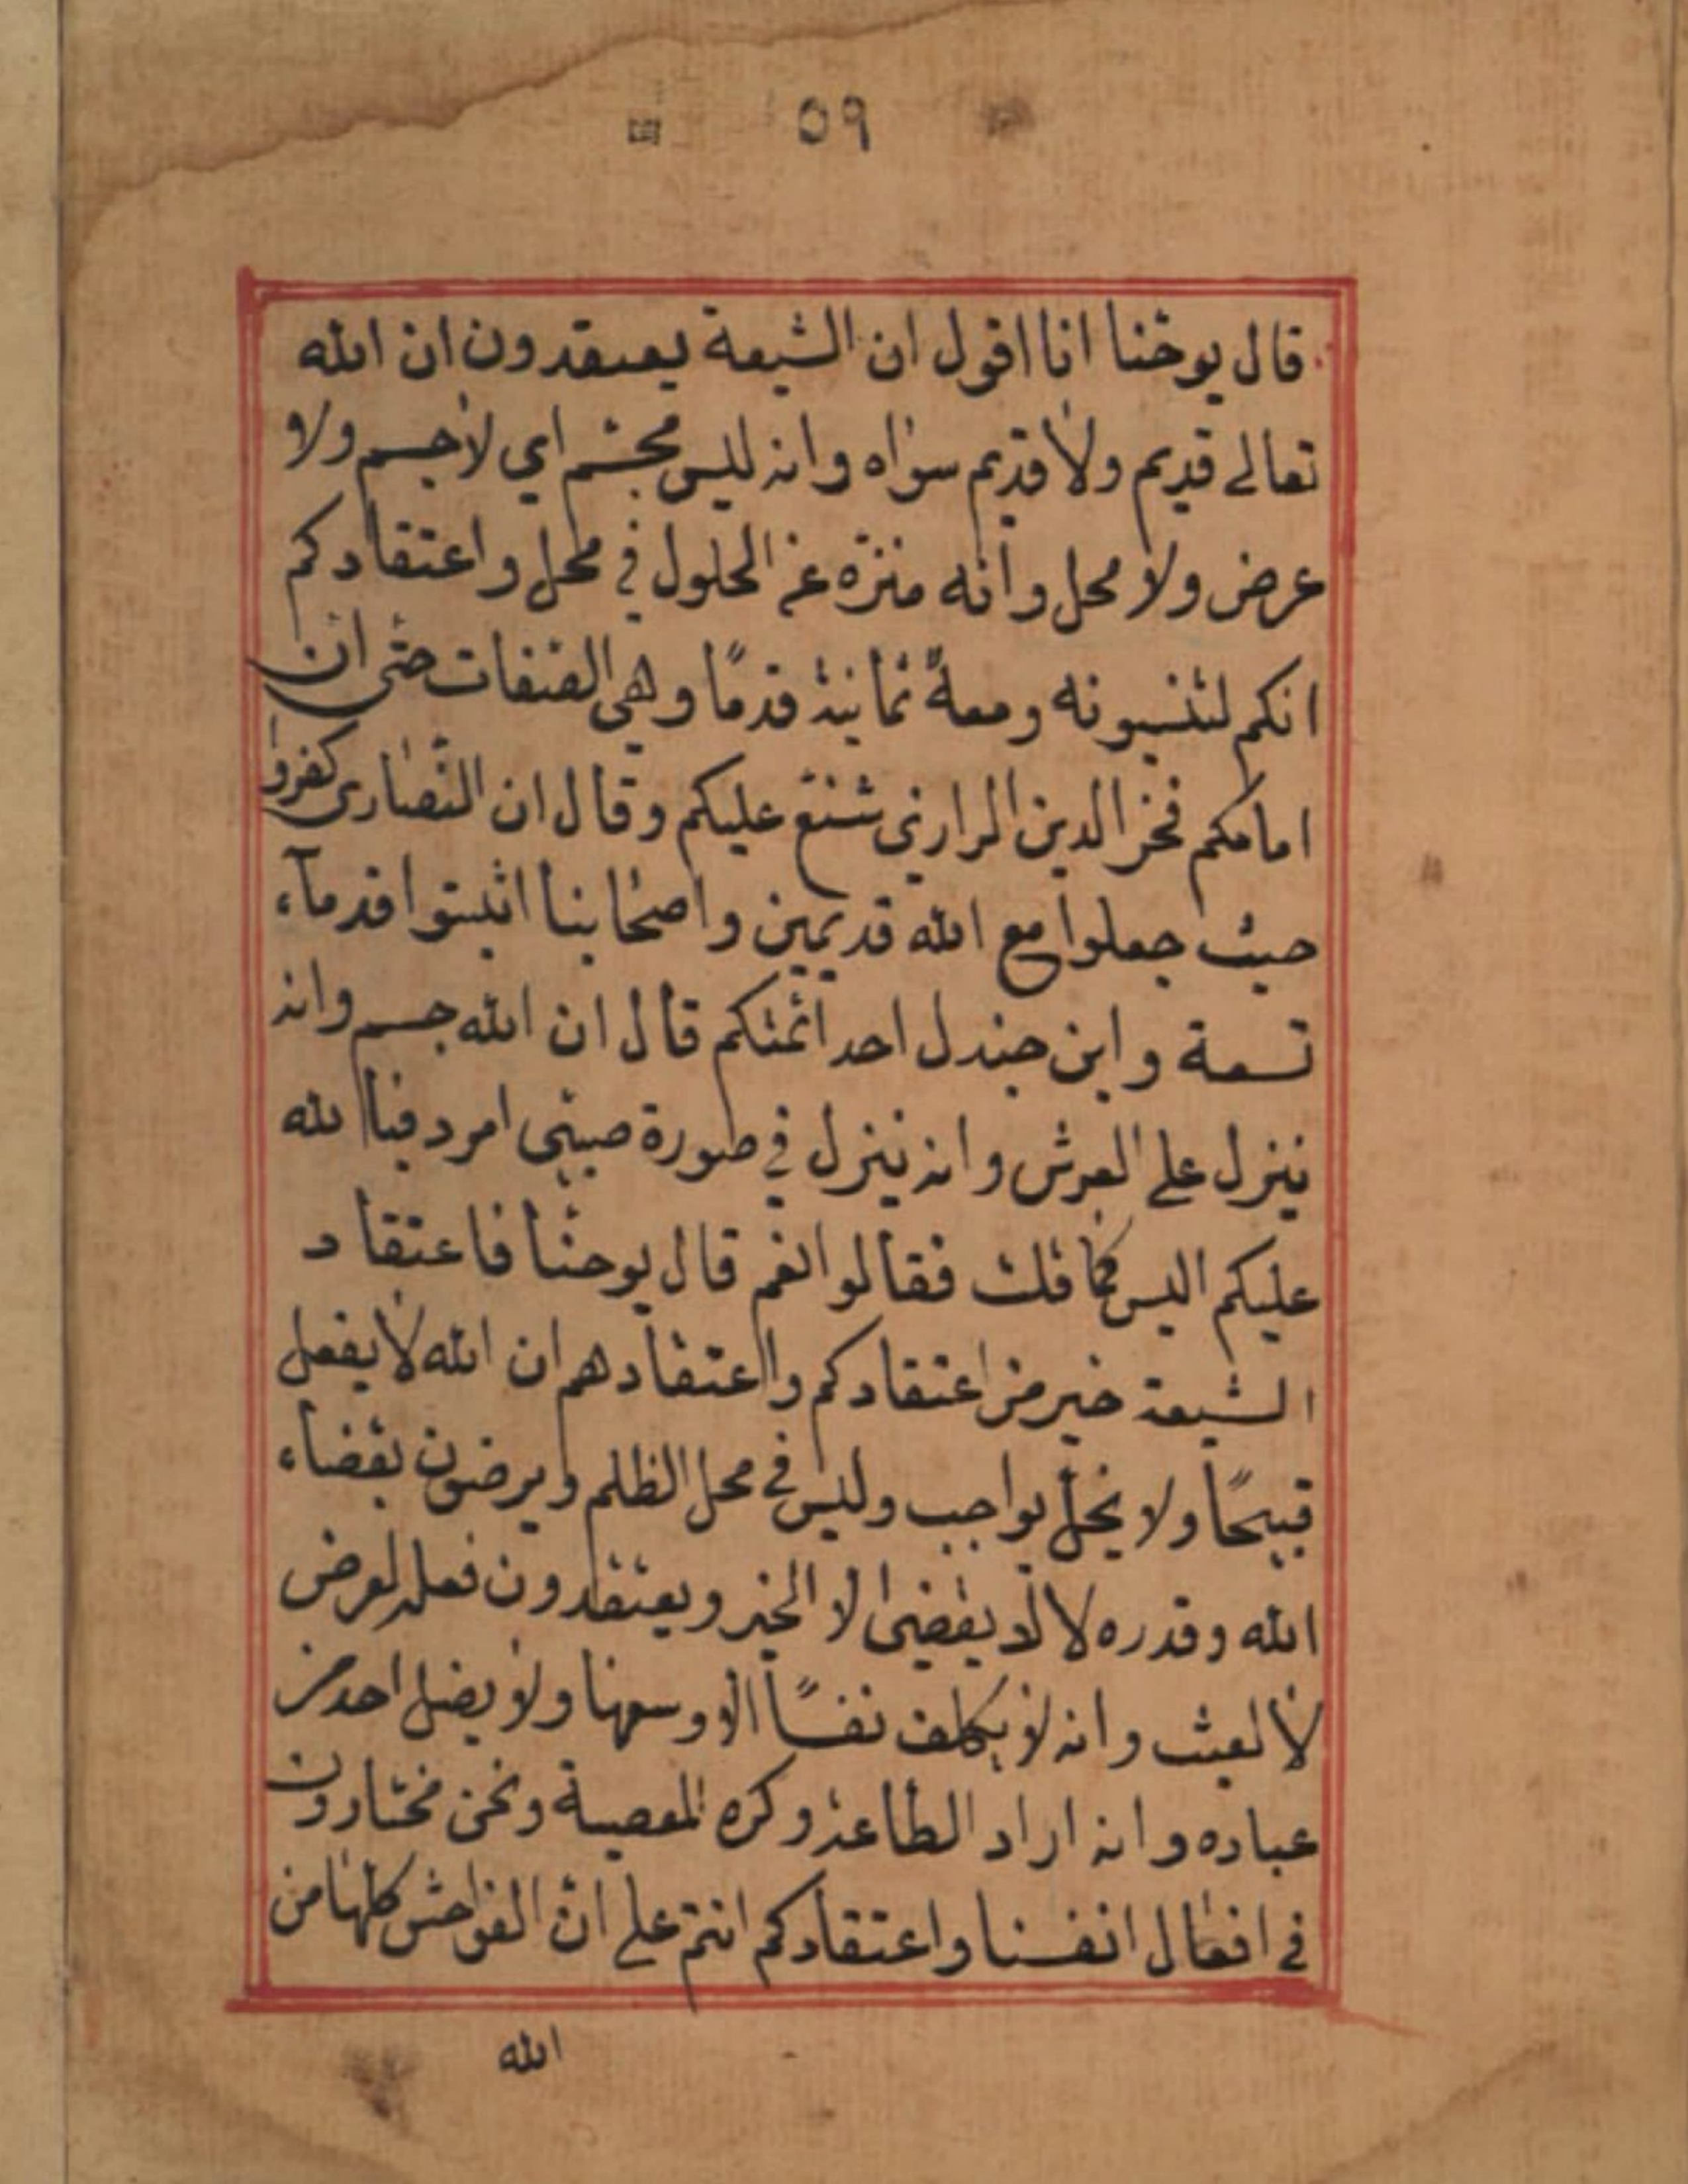 ٥٩
قال يوحنا انا اقول ان الشيعة يعتقدون ان الله
تعالى قديم ولا قديم سواه وانه ليس مجسم اي لا جسم ولا
عرض ولا محل وانه منزه عن الحلول في محل واعتقادكم
انكم ومعه ثمانية قدمًا وهي الصفات حتى ان
امامكم فخر الدين الرازي شنع عليكم وقال ان النصارى كفروا
حيث جعلوا مع الله قديمين واصحابنا اثبتوا قدماء
تسعة وابن حنبل احد ائمتكم قال ان الله جسم وانه
ينزل على العرش وانه ينزل في صورة صبي امرد فبا الله
عليكم اليس كما قلت فقالوا نعم قال يوحنا فاعتقاد
الشيعة خير من اعتقادكم واعتقادهم ان الله لا يفعل
قبيحًا ولا يخل بواجب وليس في محل الظلم ويرضون بقضاء
الله وقدره لا يقضي الا الخير ويعتقدون فعله لغرض
لا لعبث وانه لا يكلف نفسًا الا وسعها ولا يضل احد من
عباده وانه اراد الطاعة وكره المعصية ونحن مختارون
في افعال انفسنا واعتقادكم انتم على ان الفواحش كلها من
الله